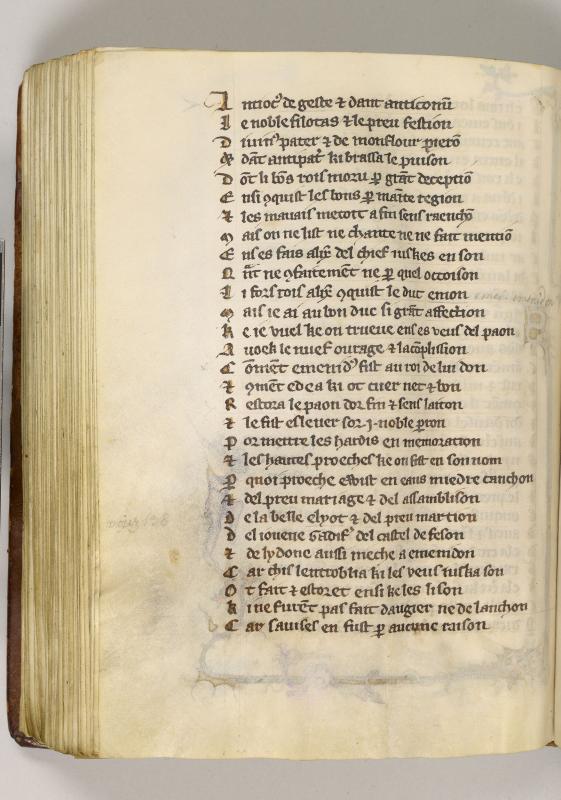 A ntioc9 de geste ⁊ dant anticonū
L e noble filotas ⁊ le preu festion
D iuin9pater ⁊ de monflour pierō
⁊ dāt antipat᷑ ki brassa le puison
D ōt li bōs rois moru ꝑ grāt deceptiō
E nsi ꝯquist les bons ꝑ mainte region
⁊ les mauais metoit a fin sens raenchō
M ais on ne list ne chante ne ne fait mentiō
E n ses fais alix᷑ del chief iuskes en son
N ne ꝯfaitemēt ne ꝑ quel occoison
L i fors rois alix᷑ ꝯquist le duc emon
M ais ie ai au bon duc si grāt affection
K e ie vuel ke on trueue en ses veus del paon
A uoek le nuef ourage ⁊ lacōplission
C ōmēt emenid9 fist au roi de lui don
⁊ ꝯmēt edea ki ot cuer net ⁊ bon
R estora le paon dor fin ⁊ sens laiton
⁊ le fist esleuer sor .j. noble ꝑron
P or mettre les hardis en memoration
⁊ les hautes proeches ke on fist en son nom
P quoi proeche en eaus miedre canchon
⁊ del preu mariage ⁊ del assamblison
D e la belle elyot ⁊ del preu martion
D el iouene gadif᷑ del castel de feson
⁊ de lydone aussi meche a emenidon
C ar chis lentroblia ki les veus iuska son
O t fait ⁊ estoret ensi ke les lison
K i ne furēt pas fait daugier ne de lanchon
C ar sauises en fust ꝑ aucune raison